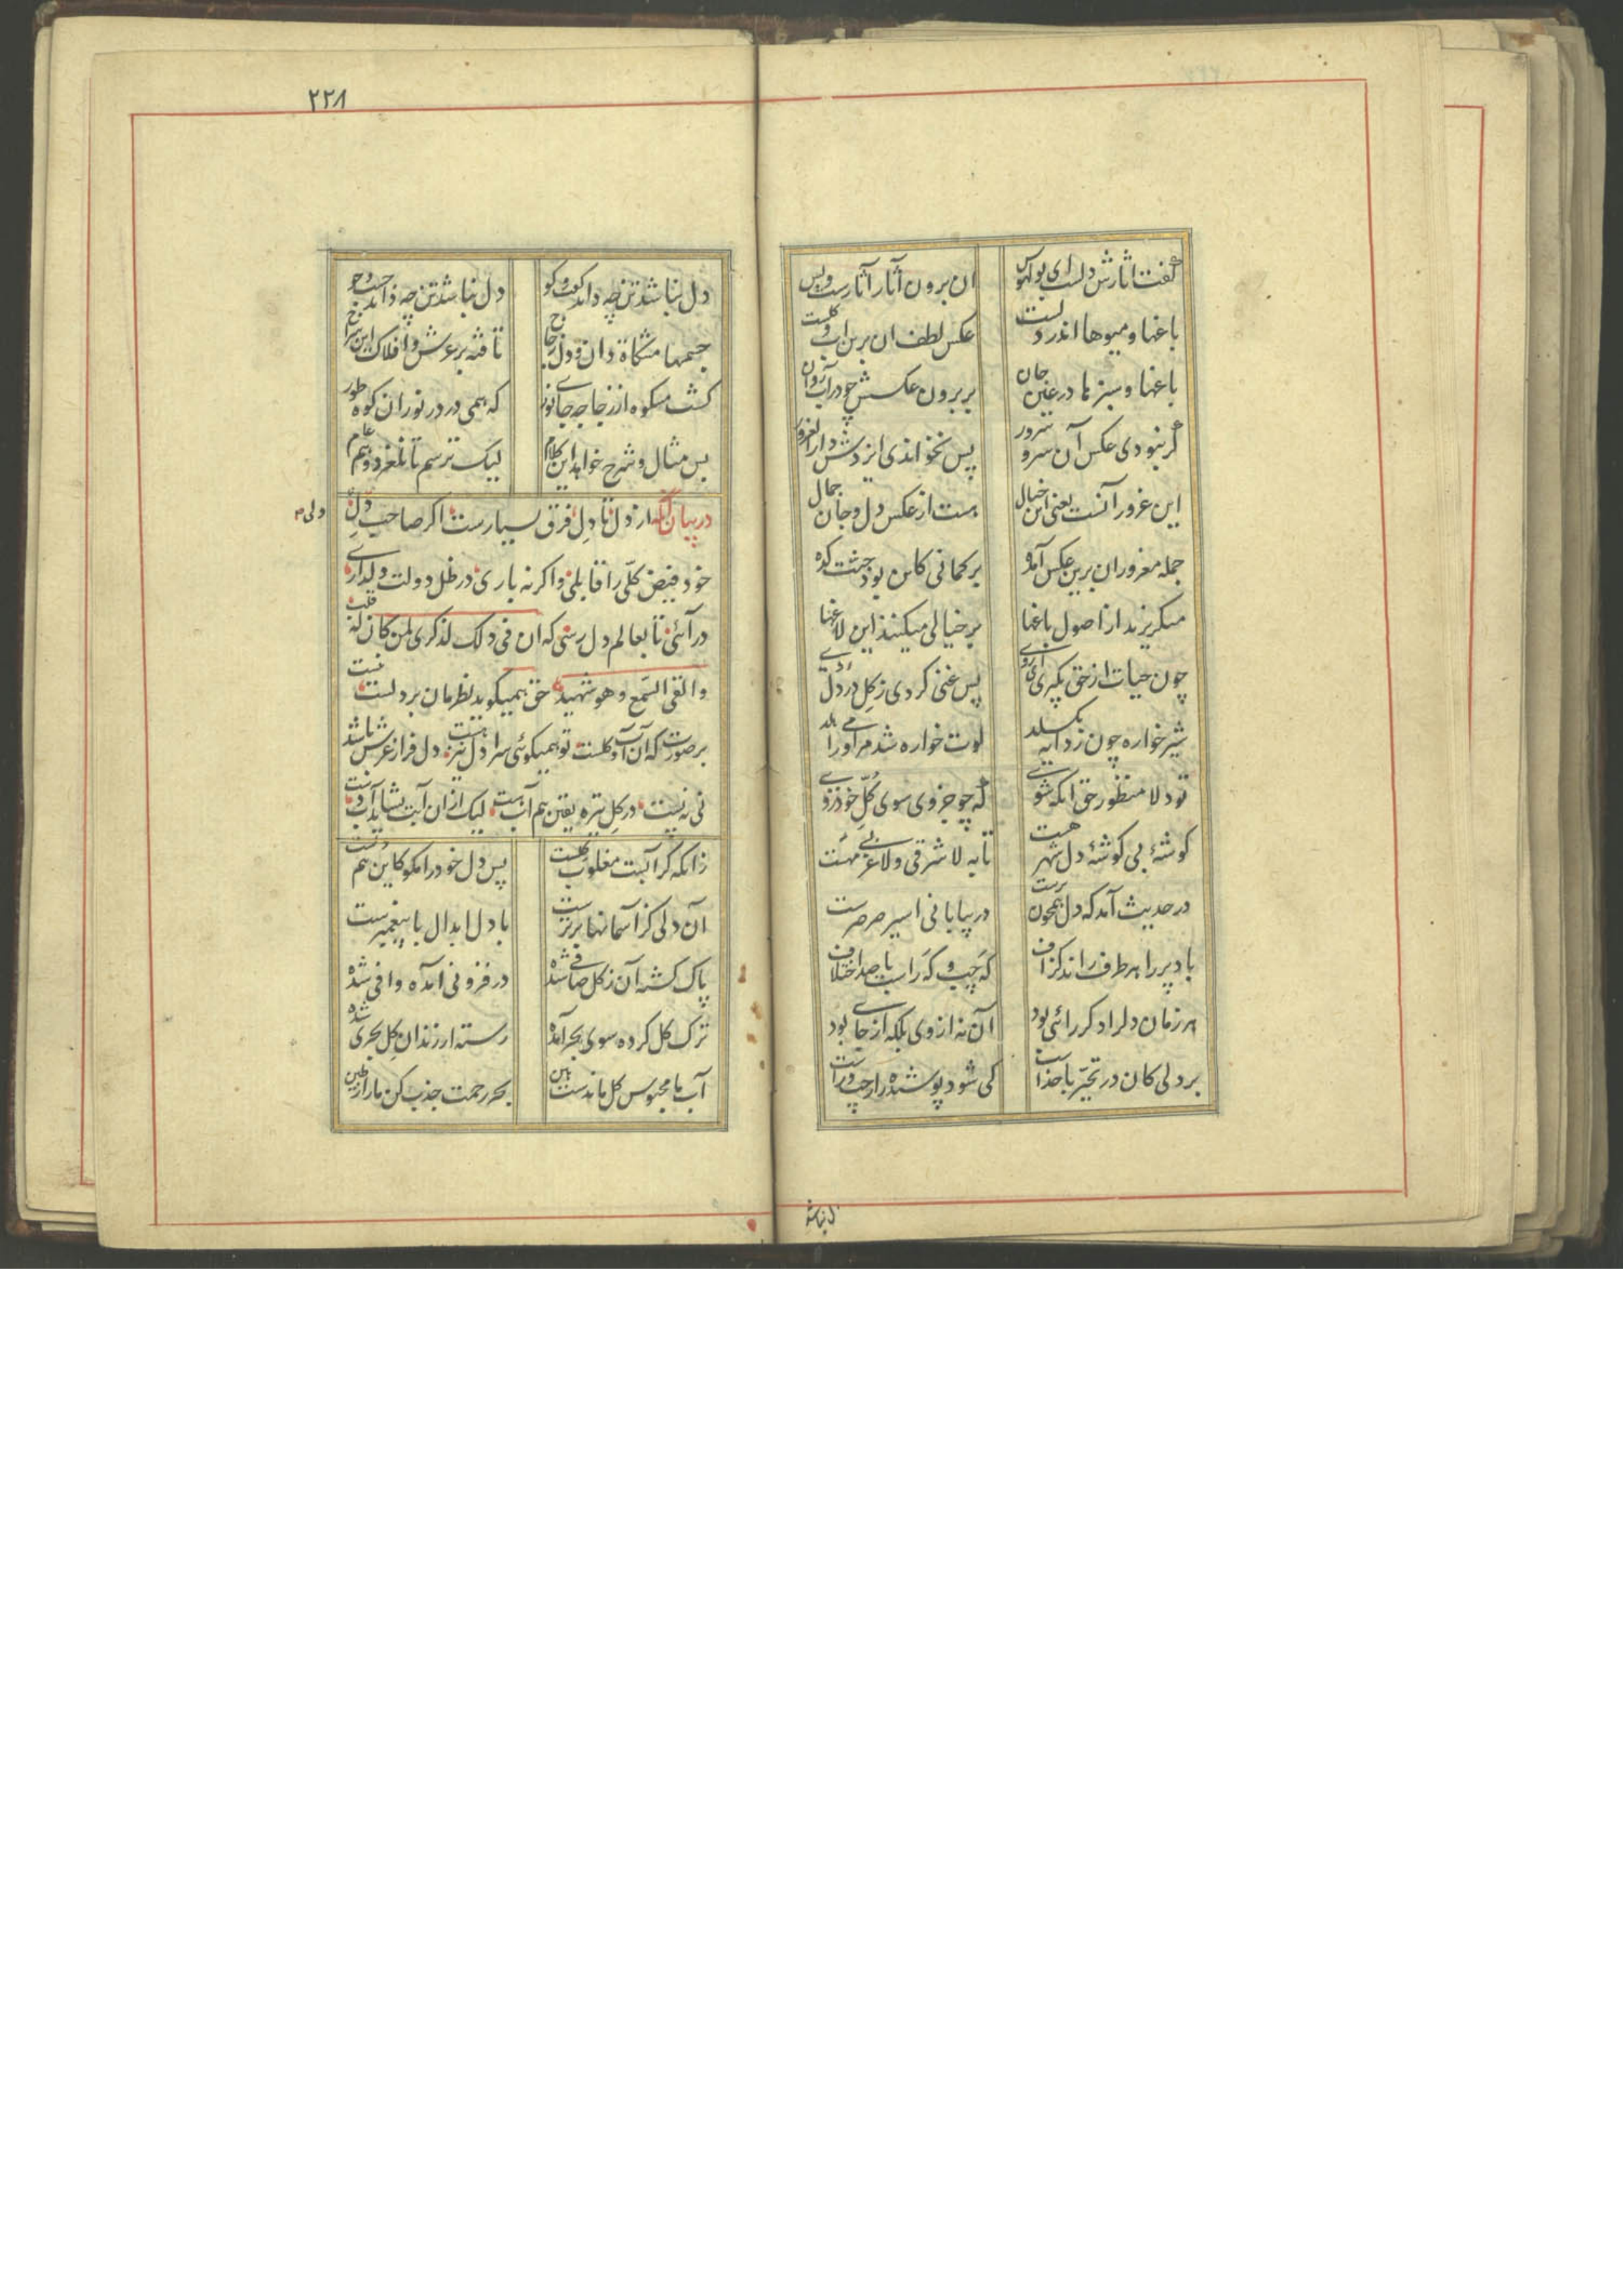 گفت اثارش دلست ای بوالهوس ان برون آثار آثارست و بس
باغها و میوها اندر دلست عکس لطف ان برین اب و کلست
باغها و سبزها در عین جان بر برون عکسش چو در آب روان
گر نبودی عکس آن سرو سرور پس نخواندی ایزدش دار الغرور
این غرور آنست یعنی این خیال هست از عکس دل و جان جمال
جمله مغروران برین عکس آمده بر کمانی کاین بود جنت کده
میکریزند از اصول باغها بر خیالی میکنند این لاغها
چون حیات از حق بکیری ای روی پس غنی کردی ز کل در دل روی
شیرخواره چون ز دایه بکسلد لوت خواره شد مر او را می هلد
تو دلا منظور حق انکه شوی که چو جزوی سوی کل خود روی
کوشهٔ بی کوشهٔ دل شهرهیست تا به لا شرقی و لا غربی
در حدیث آمد که دل همچون پرست در بیابانی اسیر صرصرست
باد پر را هر طرف راند کزاف که چپ و که راست با صد اختلاف
هر زمان دل را دکر رائی بود آن نه از وی بلکه از جایی بود
هر دلی کان در تحیر با خداست کی شود پوشیده راز چپ و راست
۲۲۸
دل نباشد تن چه داند کفت و کو دل نباشد تن چه داند جست و جو
جسمها مشکاة دان و دل زجاج تافته بر عرش و افلاک این سراج
کشت مشکوه از زجاجه جای نور که همی درد ز نور ان کوه طور
بس مثال و شرح خواهد این کلام لیک ترسم تا نلغزد وهم عام
در بیان آنکه از دل تا دل فرق بسیارست اکر صاحب دلی
ولی م
خود فیض کلی را قابلی و اکر نه باری در ظل دولت دلداری
در آئی تا بعالم دل رسی که ان فی ذلک لذکری لمن کان له قلب
و القی السمع و هو شهید حق همیکوید نظرمان بر دلست نیست
بر صورت که آن آب و کلست تو همیکوئی مرا دل نیز هست دل فراز عرش باشد
نی نه پست در کل تیره یقین هم آب هست لیک از ان آبت نشاید آبدست
زانکه کر آبست مغلوب کلست پس دل خود را مکو کاین هم دلست
آن دلی کز آسمانها برترست با دل ابدال یا پیغمبرست
پاک کشته آن ز کل صافی شده در فزونی آمده وافی شده
ترک کل کرده سوی بحر آمده رسته از زندان کل بحری شده
آب ما محبوس کل ماندست هین بحر رحمت جذب کن ما را ز طین